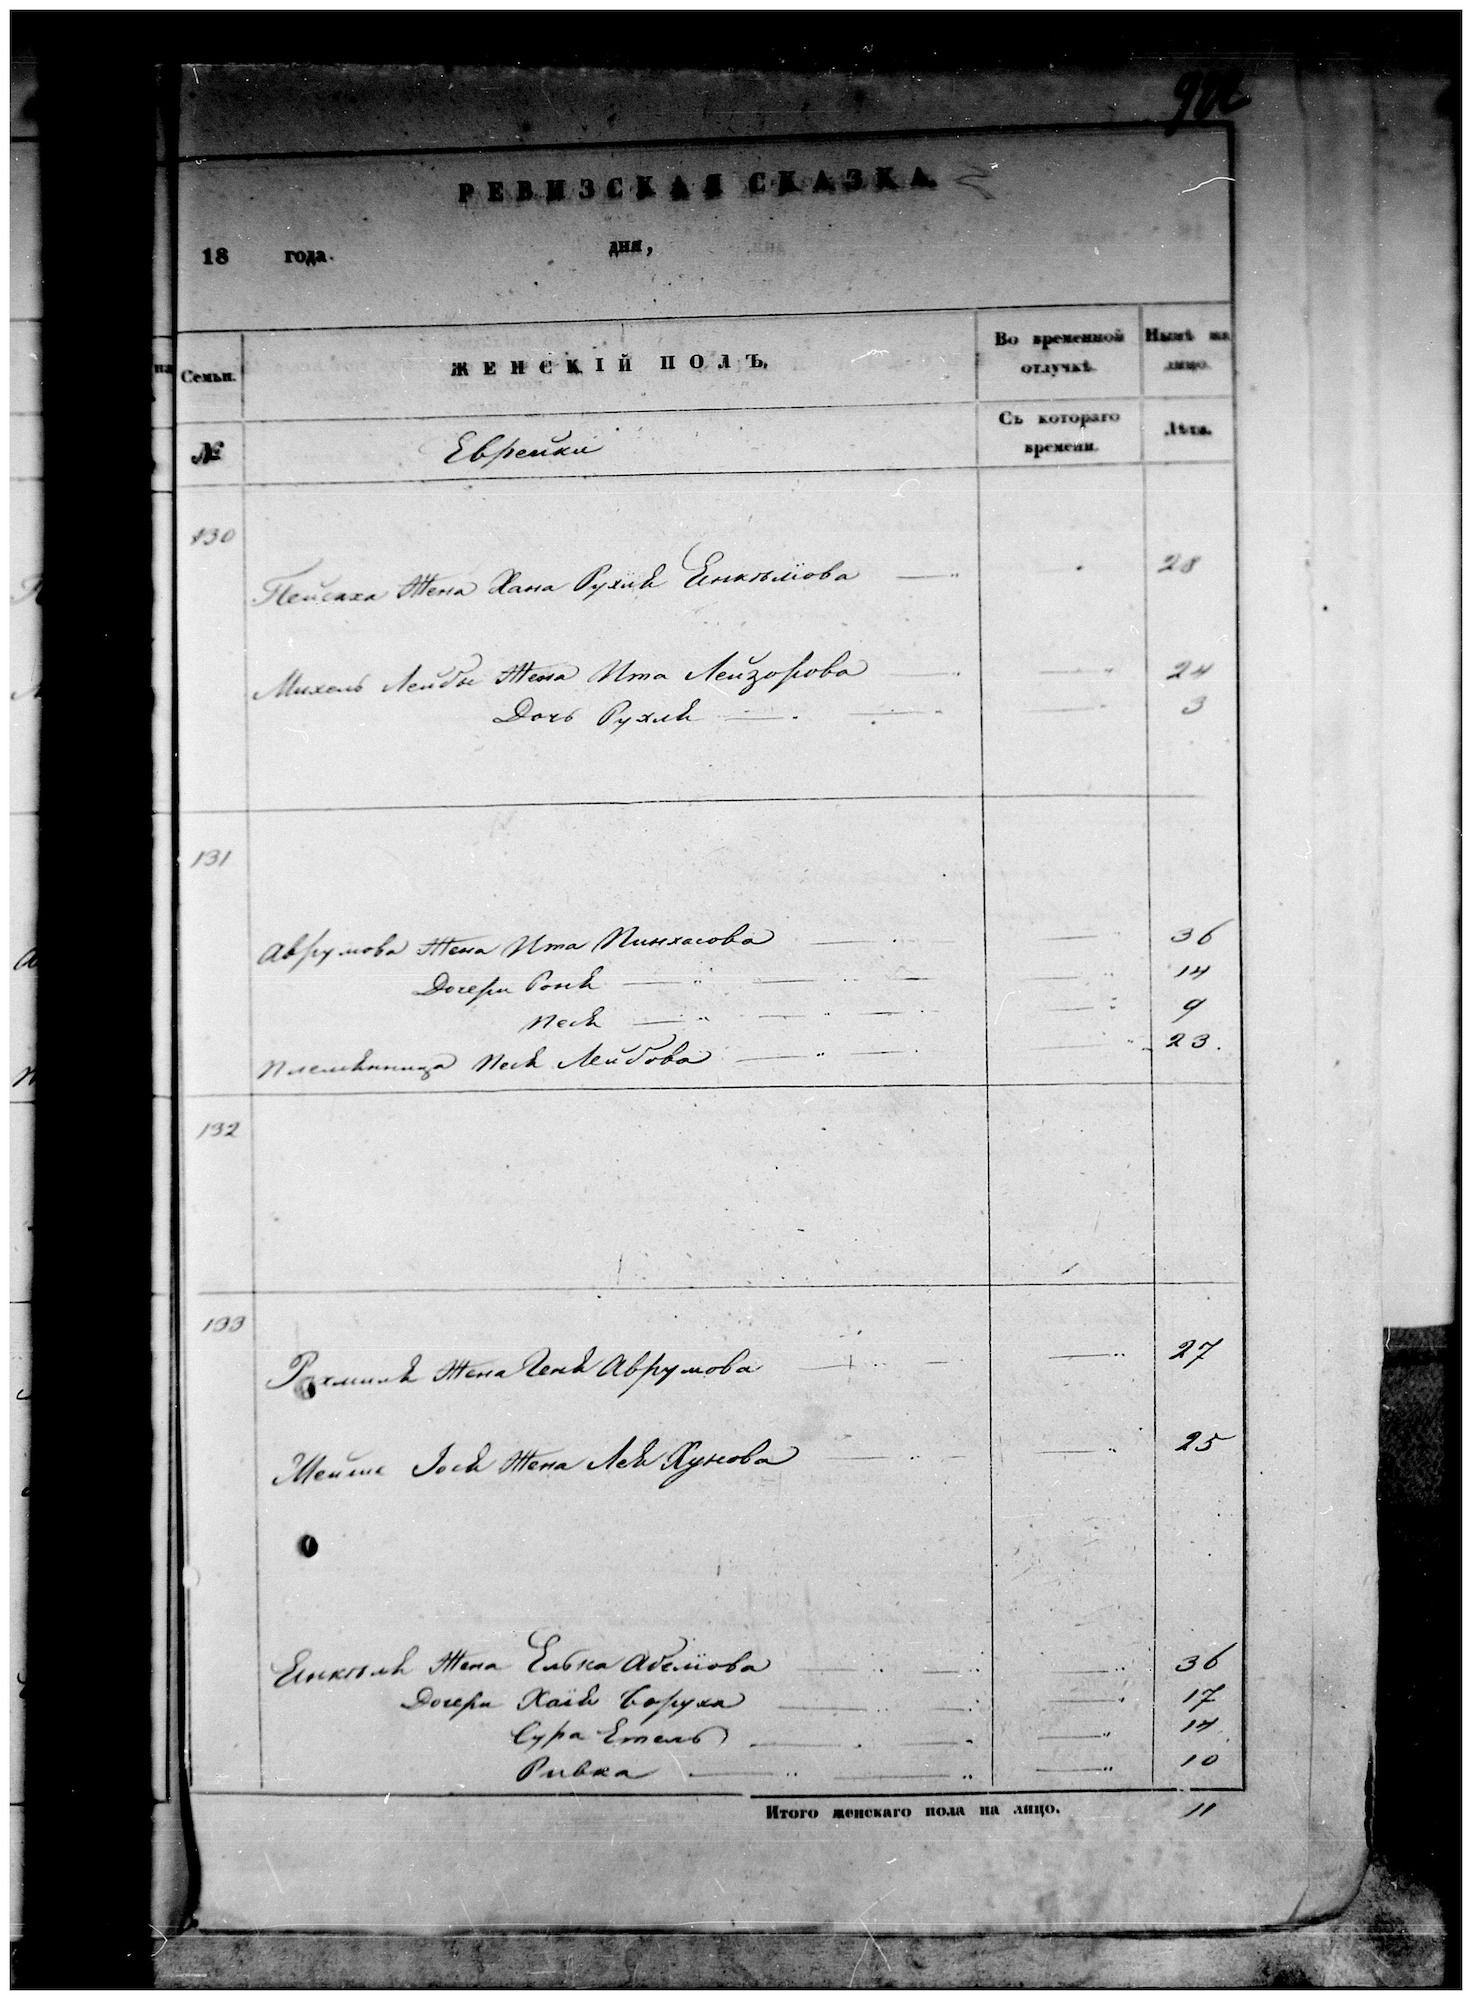 РЕВИЗСКАЯ СКАЗКА.
18 года. дня,
Семьи. ЖЕНСКІЙ ПОЛЪ. Во временной отлучкѣ. Нынѣ на лицо.
№ Еврейки Съ котораго времени. Лѣта.
130
Пейсаха Жена Хана Рухлѣ Енкѣліова 28
Михель Лейбы Жена Ита Лейзорова 24
Дочь Рухлѣ 3
131
Аврумова Жена Ита Пинхасова 36
Дочери Ронѣ 14
Песѣ 9
Племѣнница Песѣ Лейбова 23.
132
133
Рахмилѣ Жена Генѣ Аврумова 27
Мейше Іосѣ Жена Леѣ Хунова 25
Енкѣлѣ Жена Елька Абеліова 36
Дочери Хаіѣ Баруха 17
Сура Етель 14
Ривка 10
Итого женскаго пола на лицо. 11